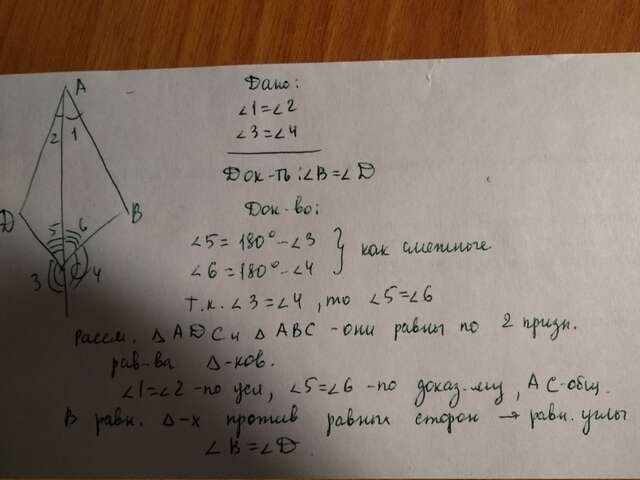 A
2 1
Д B
5 6
3 C 4
Дано:
∠1=∠2
∠3=∠4
Док-ть: ∠B=∠D
Док-во:
∠5=180°-∠3
∠6=180°-∠4 } как смежные
т.к. ∠3=∠4, то ∠5=∠6
Рассм. △ADC и △ABC - они равны по 2 призн.
рав-ва △-ков.
∠1=∠2 - по усл, ∠5=∠6 - по доказ-му, AC-общ.
В равн. △-х против равных сторон → равн. углы
∠B=∠D